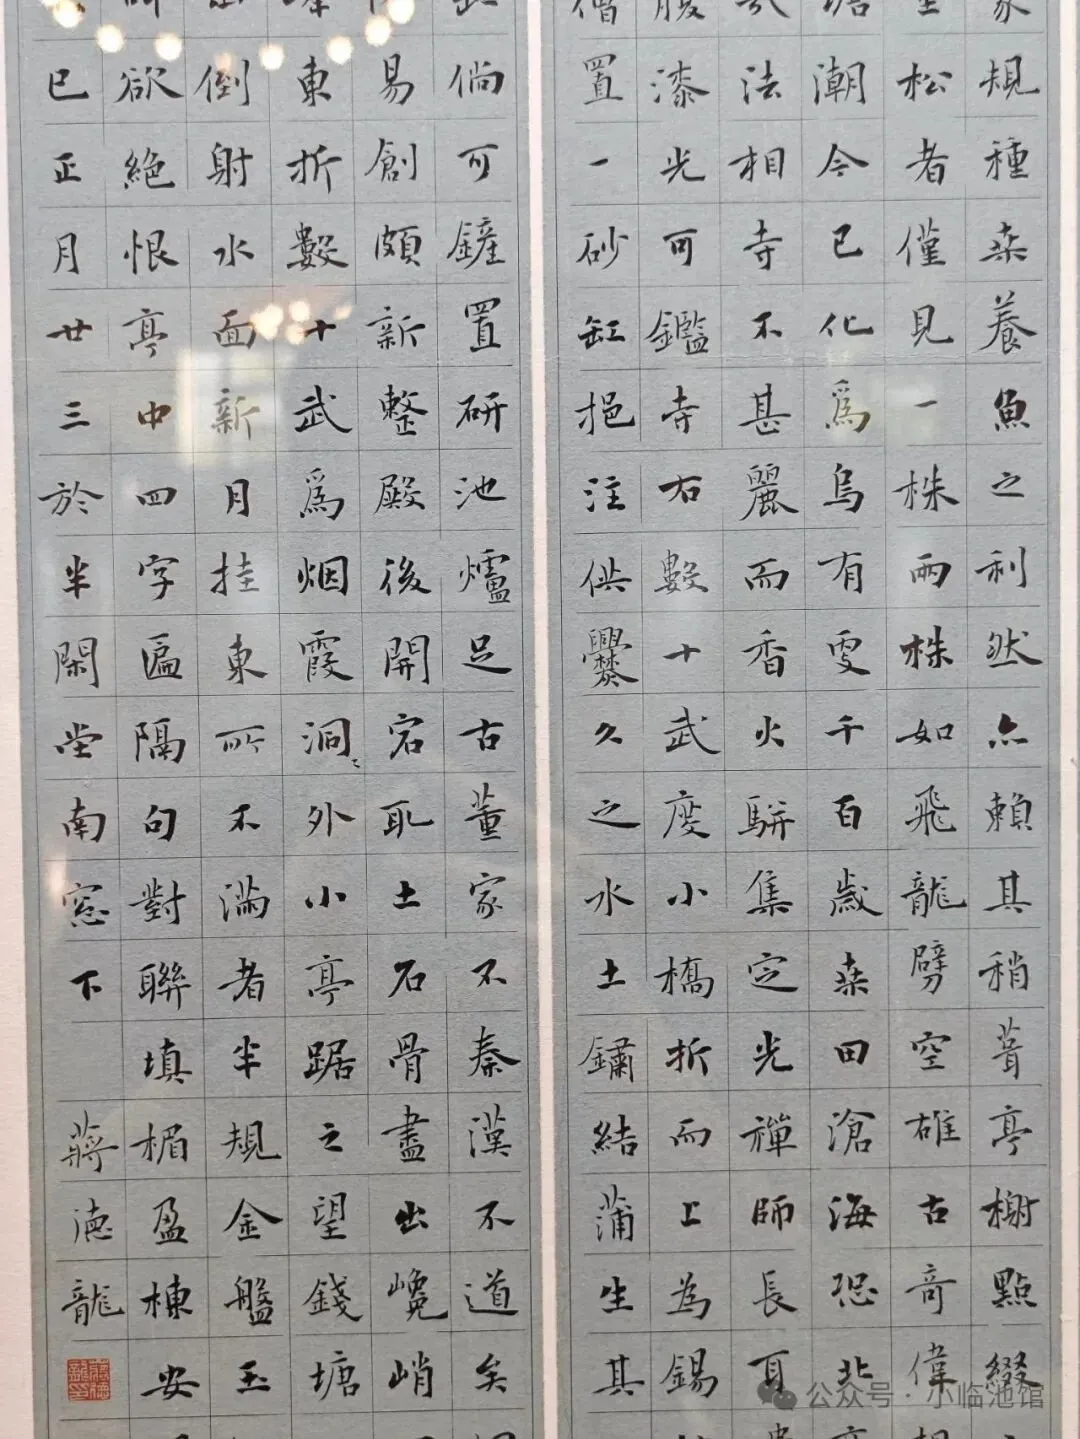 家規種桒養魚之利然亦賴其稍葺亭榭點綴
松者僅見一株兩株如飛龍劈空雄古奇偉
塘潮今已化為烏有更千百歲桒田滄海恐北
法相寺不甚麗而香火駢集定光禪師長耳
腹漆光可鑑寺右數十武度小橋折而上為錫
僧置一砂缸挹注供爨久之水土鏽結蒲生其
倘可鏟置研池爐足古董家不秦漢不道矣
易創頗新整殿後開宕取土石骨盡出巉峭
東折數十武為烟霞洞洞外小亭踞之望錢塘
倒射水面新月挂東所不滿者半規金盤玉
欲絕恨亭中四字匾隔句對聯填楣盈棟安
已正月廿三於半閑堂南窓下 蔣德龍
公众号·小临池馆